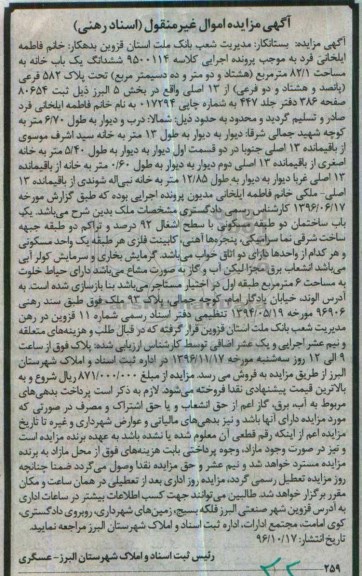 آگهی مزایده اموال غیرمنقول (اسناد رهنی)
آگهی مزایده: بستانکار: مدیریت شعب بانک ملت استان قزوین بدهکار: خانم فاطمه
ایلخانی فرد به موجب پرونده اجرایی کلاسه ۹۵۰۰۱۱۴ ششدانگ یک باب خانه به
مساحت ۸۲/۱ مترمربع (هشتاد و دو متر و ده دسیمتر مربع) تحت پلاک ۵۸۲ فرعی
(پانصد و هشتاد و دو فرعی) از ۱۳ اصلی واقع در بخش ۵ البرز ذیل ثبت ۸۰۶۵۴
صفحه ۳۸۶ دفتر جلد ۴۴۷ به شماره چاپی ۰۱۷۲۹۴ به نام خانم فاطمه ایلخانی فرد
صادر و تسلیم گردید و محدود به حدود ذیل: شمالا: درب و دیوار به طول ۶/۷۰ متر به
کوچه شهید جمالی شرقا: دیوار به دیوار به طول ۱۳ متر به خانه سید اشرف موسوی
از باقیمانده ۱۳ اصلی جنوبا در دو قسمت اول دیوار به دیوار به طول ۵/۴۰ متر به خانه
اصغری از باقیمانده ۱۳ اصلی دوم دیوار به دیوار به طول ۰/۶۰ متر به خانه از باقیمانده
۱۳ اصلی غربا دیوار به دیوار به طول ۱۲/۸۵ متر به خانه نبی‌اله شوندی از باقیمانده ۱۳
اصلی- ملکی خانم فاطمه ایلخانی مدیون پرونده اجرایی بوده که طبق گزارش مورخه
۱۳۹۶/۰۶/۱۷ کارشناس رسمی دادگستری مشخصات ملک بدین شرح می‌باشد. یک
باب ساختمان دو طبقه مسکونی با سطح اشغال ۹۲ درصد و تراکم دو طبقه جبهه
ساخت شرقی نما سرامیکی، پنجره‌ها آهنی، کابینت فلزی هر طبقه یک واحد مسکونی
و هر کدام از واحدها دارای دو اتاق خواب می‌باشد. گرمایش بخاری و سرمایش کولر آبی
می‌باشد انشعاب برق مجزا لیکن آب و گاز به صورت مشاع می‌باشد دارای حیاط خلوت
به مساحت ۶ مترمربع طبقه اول در اختیار مستاجر می‌باشد بنا بازسازی شده است. به
آدرس الوند، خیابان یادگار امام، کوچه جمالی، پلاک ۹۳ ملک فوق طبق سند رهنی
۹۶۹۰۶ مورخه ۱۳۹۴/۰۵/۱۹ تنظیمی دفتر اسناد رسمی شماره ۱۱ قزوین در رهن
مدیریت شعب بانک ملت استان قزوین قرار گرفته که در قبال طلب و هزینه‌های متعلقه
و نیم عشر اجرایی و یک عشر اضافی توسط کارشناس ارزیابی شده: پلاک فوق از ساعت
۹ الی ۱۲ روز سه‌شنبه مورخه ۱۳۹۶/۱۱/۱۷ در اداره ثبت اسناد و املاک شهرستان
البرز از طریق مزایده به فروش می رسد. مزایده از مبلغ ۸۷۱/۰۰۰/۰۰۰ ریال شروع و به
بالاترین قیمت پیشنهادی نقدا فروخته می‌شود. لازم به ذکر است پرداخت بدهی‌های
مربوط به آب، برق، گاز اعم از حق انشعاب و یا حق اشتراک و مصرف در صورتی که
مورد مزایده دارای آنها باشد و نیز بدهی‌های مالیاتی و عوارض شهرداری و غیره تا تاریخ
مزایده اعم از اینکه رقم قطعی آن معلوم شده یا نشده باشد به عهده برنده مزایده است
و نیز در صورت وجود مازاد، وجوه پرداختی بابت هزینه‌های فوق از محل مازاد به برنده
مزایده مسترد خواهد شد و نیم عشر و حق مزایده نقدا وصول می‌گردد ضمنا چنانچه
روز مزایده تعطیل رسمی گردد، مزایده روز اداری بعد از تعطیلی در همان ساعت و مکان
مقرر برگزار خواهد شد. طالبین می‌توانند جهت کسب اطلاعات بیشتر در ساعات اداری
به آدرس قزوین شهر صنعتی البرز فلکه بسیج، زمین‌های شهرداری، روبروی دادگستری،
کوی امامت، مجتمع ادارات، اداره ثبت اسناد و املاک شهرستان البرز مراجعه نمایید.
تاریخ انتشار: ۹۶/۱۰/۱۷
رئیس ثبت اسناد و املاک شهرستان البرز- عسگری
۲۵۹